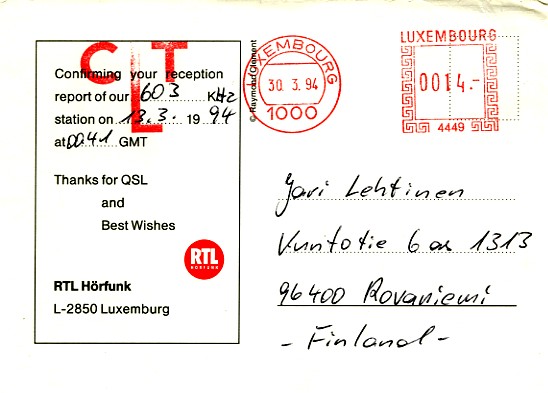 CLT
Confirming your reception
report of our 603 KHz
station on 13.3. 1994
at 00.41 GMT
Thanks for QSL
and
Best Wishes
RTL
HÖRFUNK
RTL Hörfunk
L-2850 Luxemburg
© Raymond Clement
LUXEMBOURG
30. 3. 94
1000
LUXEMBOURG
0014.-
4449
Jari Lehtinen
Kuntotie 6 as 1313
96400 Rovaniemi
- Finland -